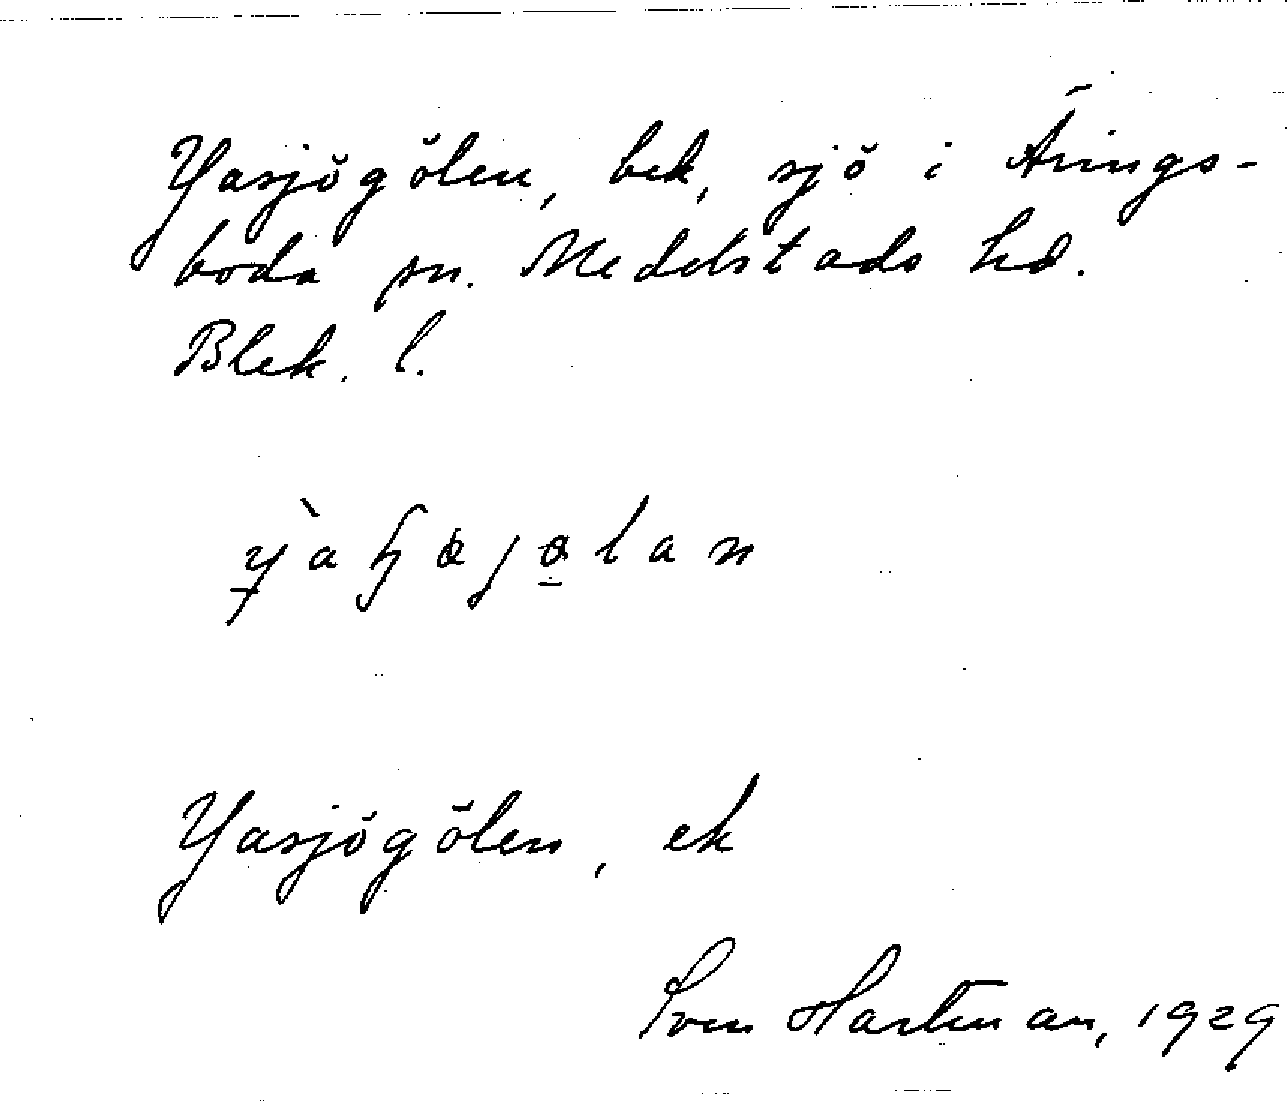 Yasjögölen, bek, sjö i Årings-
boda sn. Medelstads hd.
Blek. l.
Yasjögölen, ek
Sven Hartman, 1929